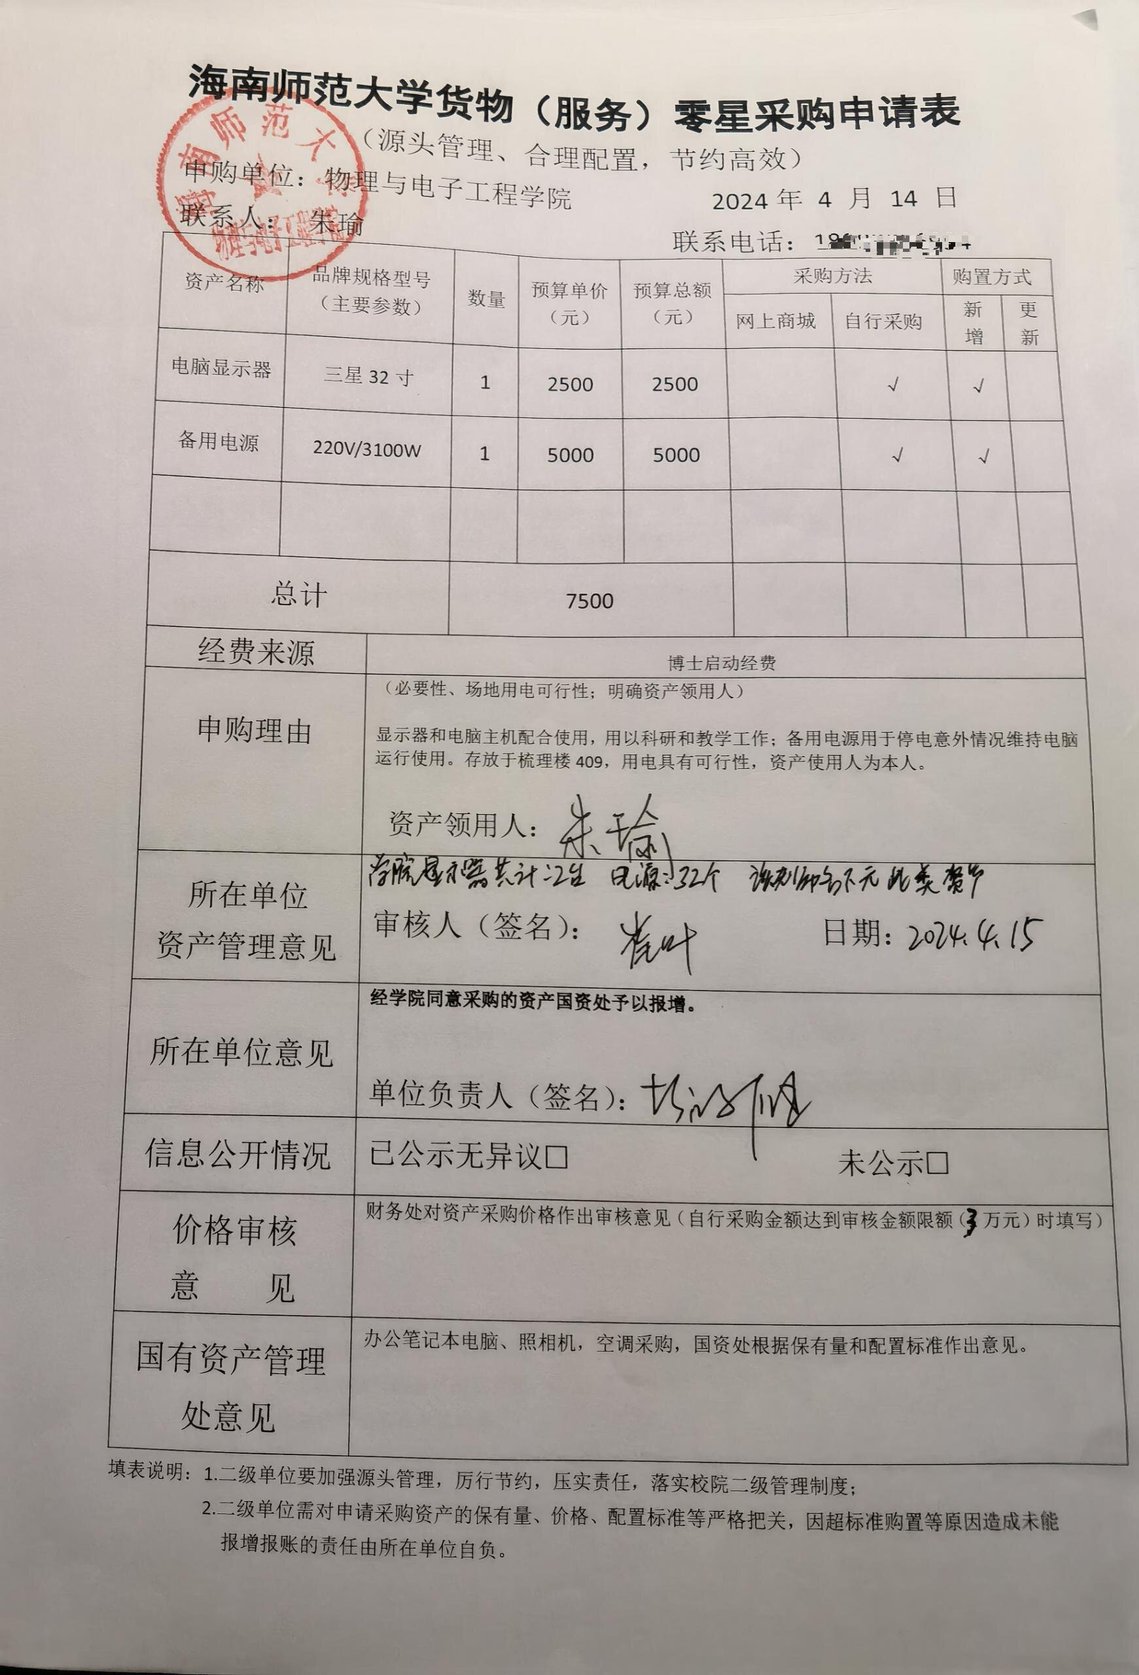 海南师范大学货物（服务）零星采购申请表
（源头管理、合理配置，节约高效）
申购单位：物理与电子工程学院 2024 年 4 月 14 日
联系人： 朱瑜 联系电话：
海南师范大学
物理与电子工程学院
资产名称 品牌规格型号（主要参数） 数量 预算单价（元） 预算总额（元） 采购方法 购置方式
网上商城 自行采购 新增 更新
电脑显示器 三星 32 寸 1 2500 2500 √ √
备用电源 220V/3100W 1 5000 5000 √ √
总计 7500
经费来源 博士启动经费
申购理由
（必要性、场地用电可行性；明确资产领用人）
显示器和电脑主机配合使用，用以科研和教学工作；备用电源用于停电意外情况维持电脑
运行使用。存放于梳理楼 409，用电具有可行性，资产使用人为本人。
资产领用人： 朱瑜
所在单位
资产管理意见
学院显示器共计 电源 32个 该老师名下无此类资产
审核人（签名）： 日期：2024.4.15
所在单位意见
经学院同意采购的资产国资处予以报增。
单位负责人（签名）：
信息公开情况 已公示无异议□ 未公示□
价格审核
意 见
财务处对资产采购价格作出审核意见（自行采购金额达到审核金额限额（3 万元）时填写）
国有资产管理
处意见
办公笔记本电脑、照相机，空调采购，国资处根据保有量和配置标准作出意见。
填表说明：1.二级单位要加强源头管理，厉行节约，压实责任，落实校院二级管理制度；
2.二级单位需对申请采购资产的保有量、价格、配置标准等严格把关，因超标准购置等原因造成未能
报增报账的责任由所在单位自负。